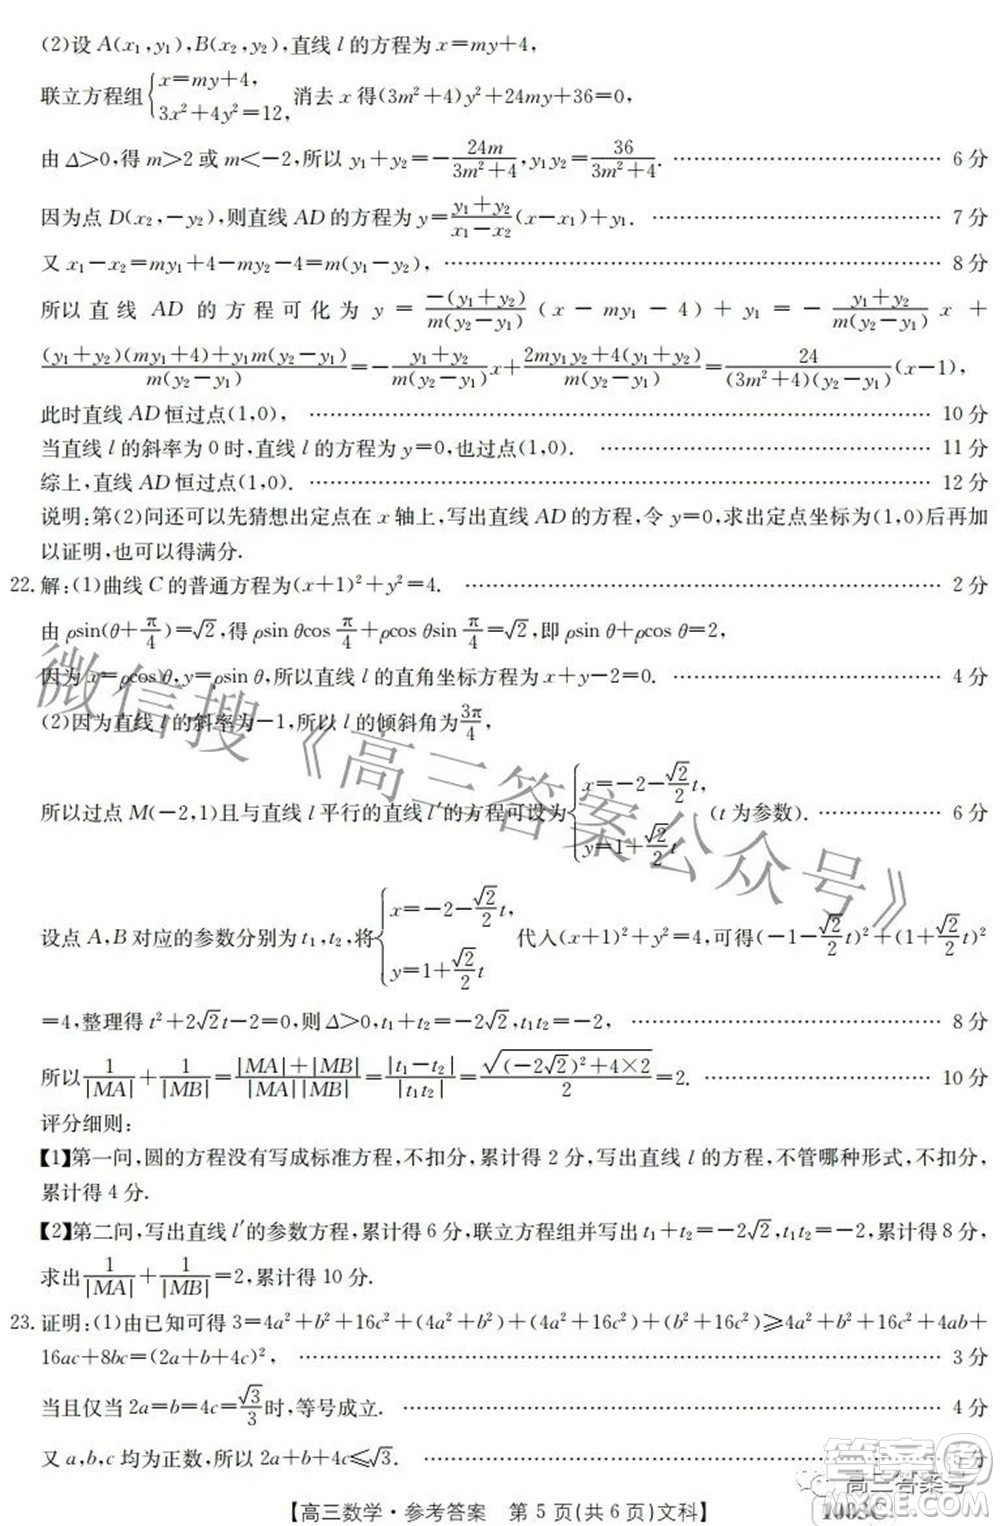 (2)设 A(x₁,y₁),B(x₂,y₂),直线 l 的方程为 x=my+4,
联立方程组{x=my+4, 3x²+4y²=12, 消去 x 得(3m²+4)y²+24my+36=0,
由 Δ>0,得 m>2 或 m<-2,所以 y₁+y₂=-24m/(3m²+4),y₁y₂=36/(3m²+4). …… 6 分
因为点 D(x₂,-y₂),则直线 AD 的方程为 y=(y₁+y₂)/(x₁-x₂)(x-x₁)+y₁. …… 7 分
又 x₁-x₂=my₁+4-my₂-4=m(y₁-y₂), …… 8 分
所以直线 AD 的方程可化为 y=-(y₁+y₂)/m(y₂-y₁)(x-my₁-4)+y₁=-(y₁+y₂)/m(y₂-y₁)x+
((y₁+y₂)(my₁+4)+y₁m(y₂-y₁))/m(y₂-y₁)=-(y₁+y₂)/m(y₂-y₁)x+(2my₁y₂+4(y₁+y₂))/m(y₂-y₁)=24/((3m²+4)(y₂-y₁))(x-1),
此时直线 AD 恒过点(1,0), …… 10 分
当直线 l 的斜率为 0 时,直线 l 的方程为 y=0,也过点(1,0). …… 11 分
综上,直线 AD 恒过点(1,0). …… 12 分
说明:第(2)问还可以先猜想出定点在 x 轴上,写出直线 AD 的方程,令 y=0,求出定点坐标为(1,0)后再加
以证明,也可以得满分.
22.解:(1)曲线 C 的普通方程为(x+1)²+y²=4. …… 2 分
由 ρsin(θ+π/4)=√2,得 ρsin θcos π/4+ρcos θsin π/4=√2,即 ρsin θ+ρcos θ=2,
因为 x=ρcos θ,y=ρsin θ,所以直线 l 的直角坐标方程为 x+y-2=0. …… 4 分
(2)因为直线 l 的斜率为-1,所以 l 的倾斜角为3π/4,
所以过点 M(-2,1)且与直线 l 平行的直线 l′的方程可设为{x=-2-√2/2t, y=1+√2/2t (t 为参数). …… 6 分
设点 A,B 对应的参数分别为 t₁,t₂,将{x=-2-√2/2t, y=1+√2/2t 代入(x+1)²+y²=4,可得(-1-√2/2t)²+(1+√2/2t)²
=4,整理得 t²+2√2t-2=0,则 Δ>0,t₁+t₂=-2√2,t₁t₂=-2, …… 8 分
所以1/|MA|+1/|MB|=(|MA|+|MB|)/(|MA||MB|)=|t₁-t₂|/|t₁t₂|=√((-2√2)²+4×2)/2=2. …… 10 分
评分细则:
【1】第一问,圆的方程没有写成标准方程,不扣分,累计得 2 分,写出直线 l 的方程,不管哪种形式,不扣分,
累计得 4 分.
【2】第二问,写出直线 l′的参数方程,累计得 6 分,联立方程组并写出 t₁+t₂=-2√2,t₁t₂=-2,累计得 8 分,
求出1/|MA|+1/|MB|=2,累计得 10 分.
23.证明:(1)由已知可得 3=4a²+b²+16c²+(4a²+b²)+(4a²+16c²)+(b²+16c²)≥4a²+b²+16c²+4ab+
16ac+8bc=(2a+b+4c)², …… 3 分
当且仅当 2a=b=4c=√3/3时,等号成立. …… 4 分
又 a,b,c 均为正数,所以 2a+b+4c≤√3. …… 5 分
【高三数学·参考答案 第 5 页(共 6 页)文科】
1003C
微信搜《高三答案公众号》
高三答案号
答案圈
MXQE.COM